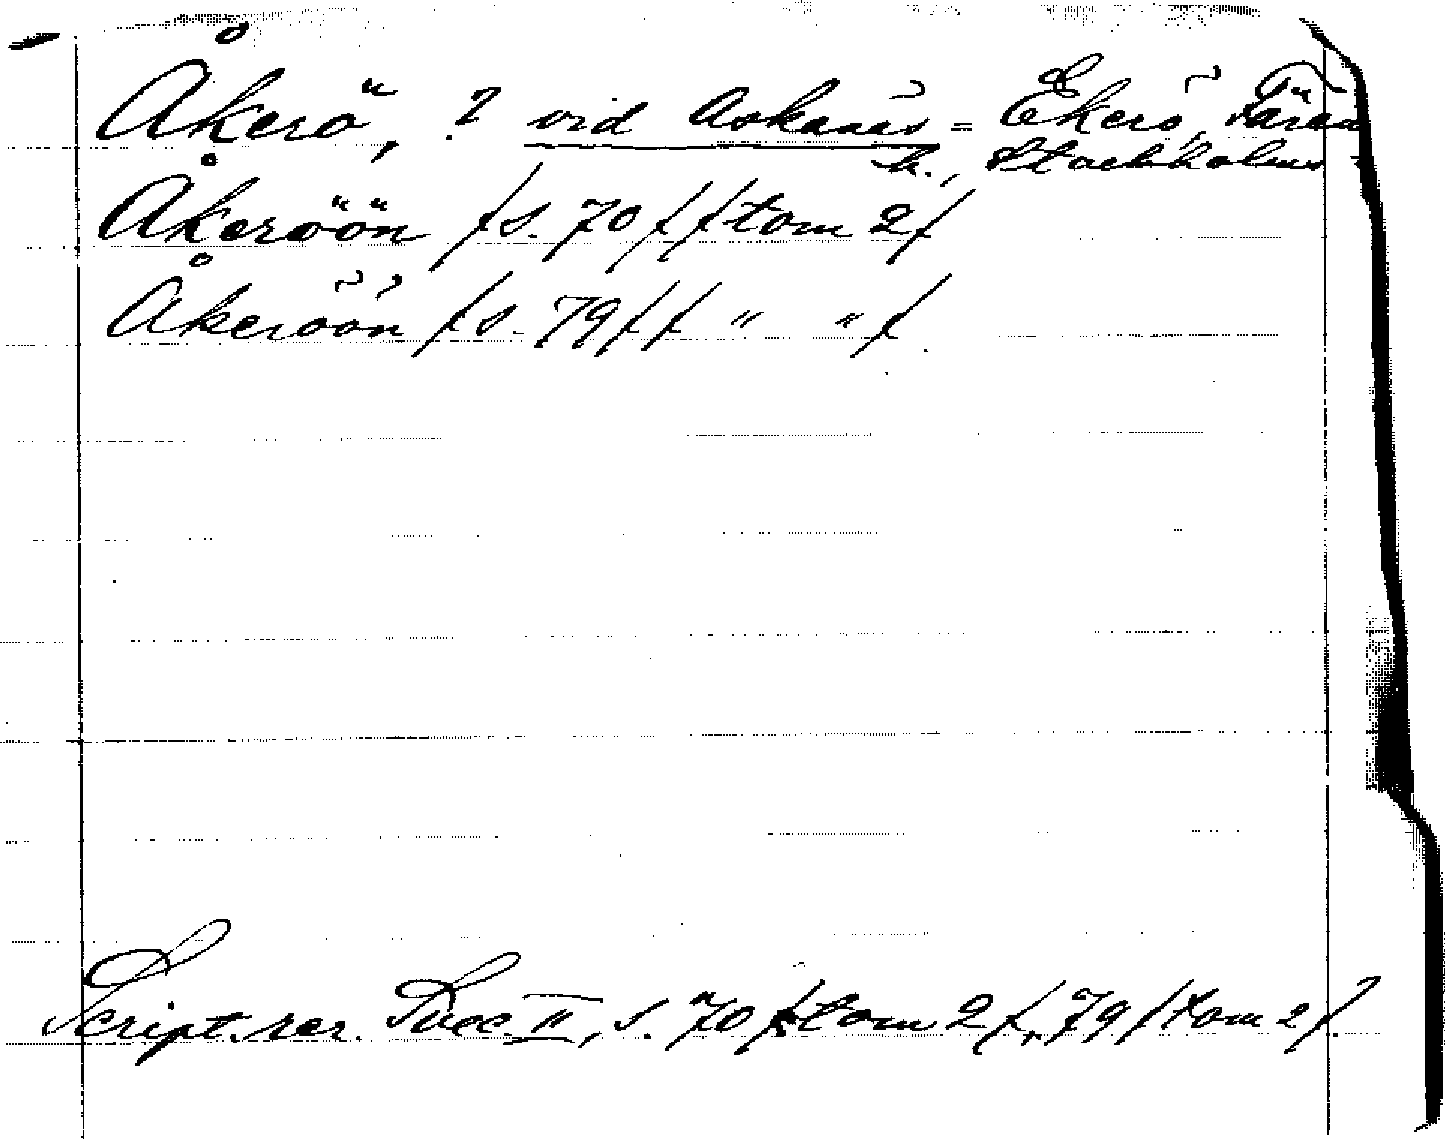 Åkerö, ? vid Askanäs = Ekerö, Fären
h., Stockholms
Åkeröön /s. 70/ /tom 2/
Åkeröön /s. 79/ / " " /.
Script. rer. Suec. II, s. 70 /tom 2/, 79 /tom 2/.